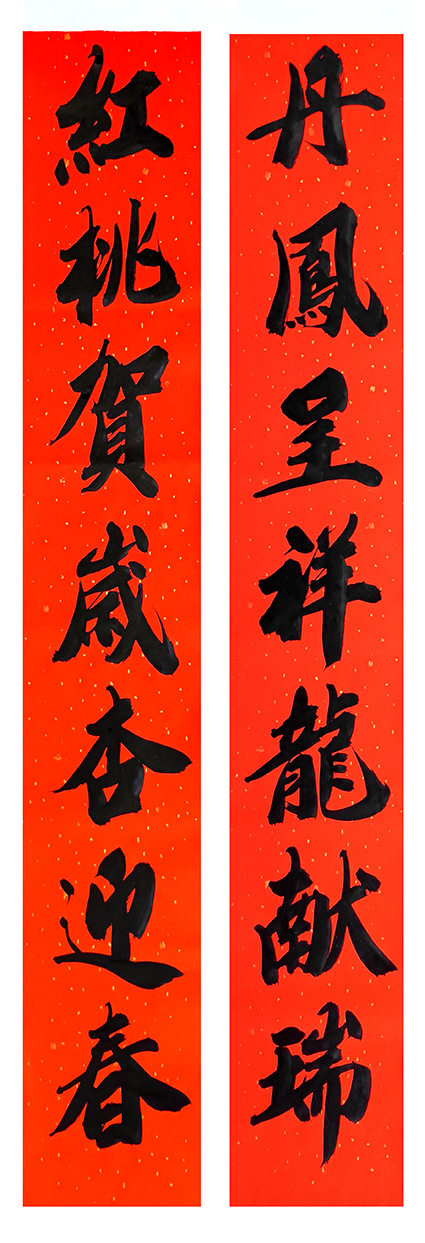 丹鳳呈祥龍献瑞
紅桃賀歳杏迎春